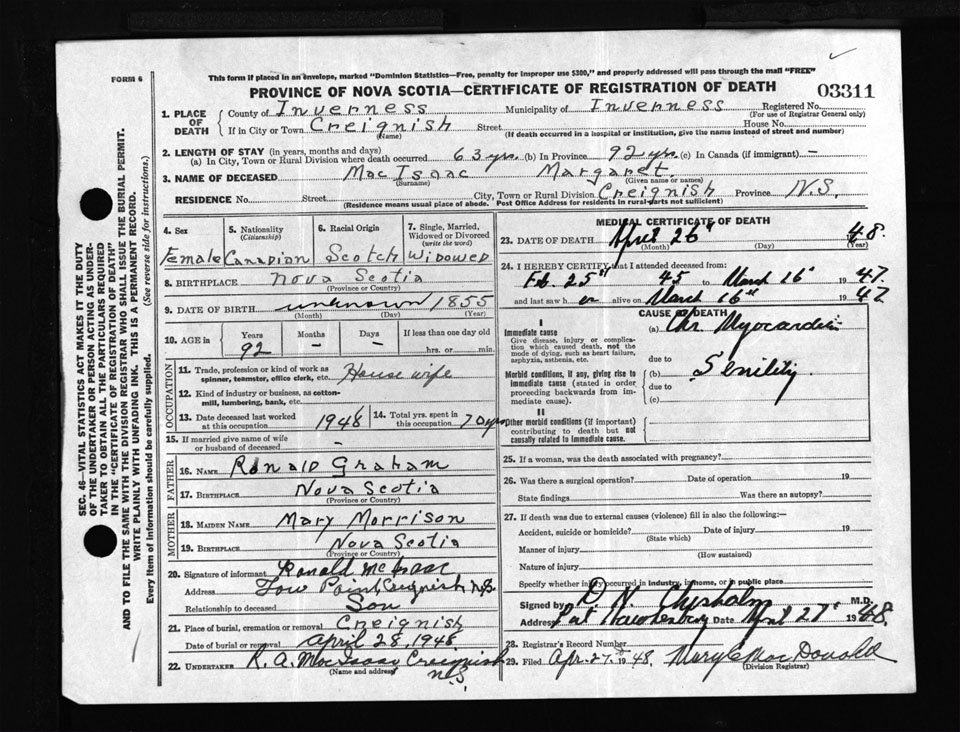 FORM 6
This form if placed in an envelope, marked "Dominion Statistics—Free, penalty for improper use $300," and properly addressed will pass through the mail "FREE"
PROVINCE OF NOVA SCOTIA—CERTIFICATE OF REGISTRATION OF DEATH 03311
1. PLACE OF DEATH County of Inverness Municipality of Inverness Registered No.
(For use of Registrar General only)
If in City or Town Creignish Street House No.
(Name) (If death occurred in a hospital or institution, give the name instead of street and number)
2. LENGTH OF STAY (in years, months and days)
(a) In City, Town or Rural Division where death occurred 63 yrs. (b) In Province 92 yrs. (c) In Canada (if immigrant) —
3. NAME OF DECEASED MacIsaac Margaret.
(Surname) (Given name or names)
RESIDENCE No. Street City, Town or Rural Division Creignish Province N.S.
(Residence means usual place of abode. Post Office Address for residents in rural parts not sufficient)
4. Sex 5. Nationality (Citizenship) 6. Racial Origin 7. Single, Married, Widowed or Divorced (write the word)
Female Canadian Scotch Widowed
8. BIRTHPLACE Nova Scotia
(Province or Country)
9. DATE OF BIRTH unknown 1855
(Month) (Day) (Year)
10. AGE in Years Months Days If less than one day
92 — — hrs. or min.
OCCUPATION
11. Trade, profession or kind of work as spinner, teamster, office clerk, etc. House wife
12. Kind of industry or business, as cotton-mill, lumbering, bank, etc.
13. Date deceased last worked at this occupation 1948 14. Total yrs. spent in this occupation 70 yrs
15. If married give name of wife or husband of deceased —
FATHER
16. NAME Ronald Graham
17. BIRTHPLACE Nova Scotia
(Province or Country)
MOTHER
18. MAIDEN NAME Mary Morrison
19. BIRTHPLACE Nova Scotia
(Province or Country)
20. Signature of informant Ronald McIsaac
Address Low Point, Creignish N.S.
Relationship to deceased Son
21. Place of burial, cremation or removal Creignish
Date of burial or removal April 28, 1948
22. UNDERTAKER R. A. MacIsaac Creignish
(Name and address) N.S
MEDICAL CERTIFICATE OF DEATH
23. DATE OF DEATH April 26" 48.
(Month) (Day) (Year)
24. I HEREBY CERTIFY, that I attended deceased from:
Feb. 25" 45 to March 16" 1947.
and last saw h er alive on March 16" 1947
CAUSE OF DEATH
I
Immediate cause
Give disease, injury or complication which caused death, not the mode of dying, such as heart failure, asphyxia, asthenia, etc.
(a) Chr. Myocarditis
due to
Morbid conditions, if any, giving rise to immediate cause (stated in order proceeding backwards from immediate cause).
(b) Senility.
due to
(c)
II
Other morbid conditions (if important) contributing to death but not causally related to immediate cause.
25. If a woman, was the death associated with pregnancy?
26. Was there a surgical operation? Date of operation 19
State findings Was there an autopsy?
27. If death was due to external causes (violence) fill in also the following:
Accident, suicide or homicide? Date of injury 19
(State which)
Manner of injury
(How sustained)
Nature of injury
Specify whether injury occurred in industry, in home, or in public place
Signed by D. N. Chisholm M.D.
Address Port Hawkesbury Date April 27" 1948.
28. Registrar's Record Number
29. Filed Apr. 27th 1948. Mary C MacDonald
(Division Registrar)
SEC. 46—VITAL STATISTICS ACT MAKES IT THE DUTY
OF THE UNDERTAKER OR PERSON ACTING AS UNDER-
TAKER TO OBTAIN ALL THE PARTICULARS REQUIRED
IN THE "CERTIFICATE OF REGISTRATION OF DEATH"
AND TO FILE THE SAME WITH THE DIVISION REGISTRAR WHO SHALL ISSUE THE BURIAL PERMIT.
WRITE PLAINLY WITH UNFADING INK. THIS IS A PERMANENT RECORD.
Every item of Information should be carefully supplied. (See reverse side for instructions.)